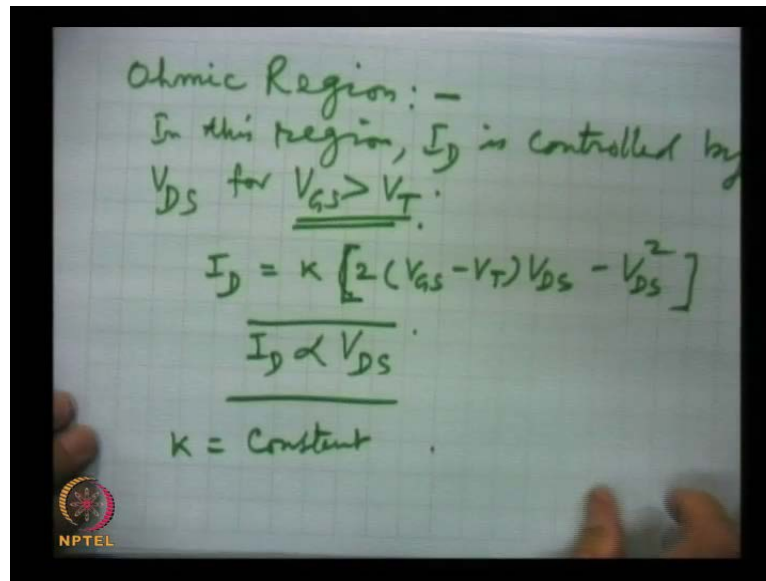 Ohmic Region: -
In this region, I_D is controlled by
V_DS for V_GS > V_T.
I_D = K [2(V_GS - V_T) V_DS - V_DS^2]
I_D ∝ V_DS
K = Constent .
NPTEL